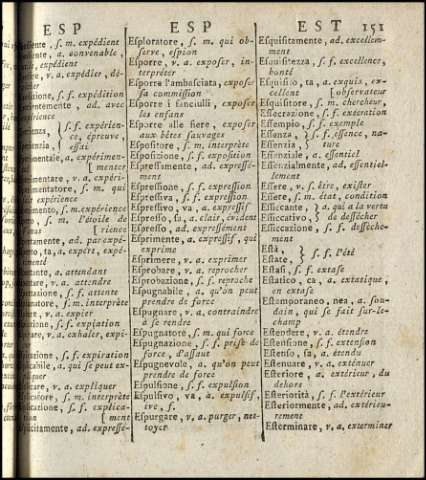 ESP ESP EST 151
s. m. expédient
a. convenable,
expédient
v. a. expédier, dé-
s. f. expédition
ad. avec
s. f. expérien-
ce, épreuve,
essai
a. expérimen-
[menter
v. a. expéri-
s. m. qui
s.m.expérience
s. m. l'étoile de
[rience
ad. parexpé-
ta, a. expéri-
a. attendant
v. a. attendre
s. f. attente
s. m. interprète
v. a. expier
s. f. expiation
v. a. exhaler, expi-
s. f. expiration
a. qui se peut ex-
v. a. expliquer
s. m. interprète
s. f. explica-
[ment
ad. expressé-
Esploratore, s. m. qui ob-
serve, espion
Esporre, v. a. exposer, in-
terpréter
Esporre l'ambasciata, exposer
sa commission
Esporre i fanciulli, exposer
les enfans
Esporre alle fiere, exposer
aux bêtes sauvages
Espositore, s. m. interprète
Esposizione, s. f. exposition
Espressamente, ad. expressé-
ment
Espressione, s. f. expression
Espressiva, s. f. expression
Espressivo, va, a. expressif
Espresso, sa, a. clair, évident
Espresso, ad. expressément
Esprimente, a. expressif, qui
exprime
Esprimere, v. a. exprimer
Esprobare, v. a. reprocher
Esprobazione, s. f. reproche
Espugnabile, a. qu'on peut
prendre de force
Espugnare, v. a. contraindre
à se rendre
Espugnatore, s. m. qui force
Espugnazione, s. f. prise de
force, d'assaut
Espugnevole, a. qu'on peut
prendre de force
Espulsione, s. f. expulsion
Espulsivo, va, a. expulsif,
ive, f.
Espurgare, v. a. purger, net-
toyer
Esquisitamente, ad. excellem-
ment
Esquisitezza, s. f. excellence,
bonté
Esquisito, ta, a. exquis, ex-
cellent [observateur
Esquisitore, s. m. chercheur,
Essecrazione, s. f. exécration
Essempio, s. f. exemple
Essenza, } s. f. essence, na-
Essenzia, } ture
Essenziale, a. essentiel
Essenzialmente, ad. essentiel-
lement
Essere, v. s. être, exister
Essere, s. m. état, condition
Essiccante, } a. qui a la vertu
Essiccativo, } de dessécher
Essiccazione, s. f. desséche-
ment
Està, } s. f. l'été
Estate, }
Estasi, s. f. extase
Estatico, ca, a. extatique,
en extase
Estemporaneo, nea, a. sou-
dain, qui se fait sur-le-
champ
Estendere, v. a. étendre
Estensione, s. f. extension
Estenso, sa, a. étendu
Estenuare, v. a. exténuer
Esteriore, a. extérieur, du
dehors
Esteriorità, s. f. l'extérieur
Esteriormente, ad. extérieu-
rement
Esterminare, v. a. exterminer